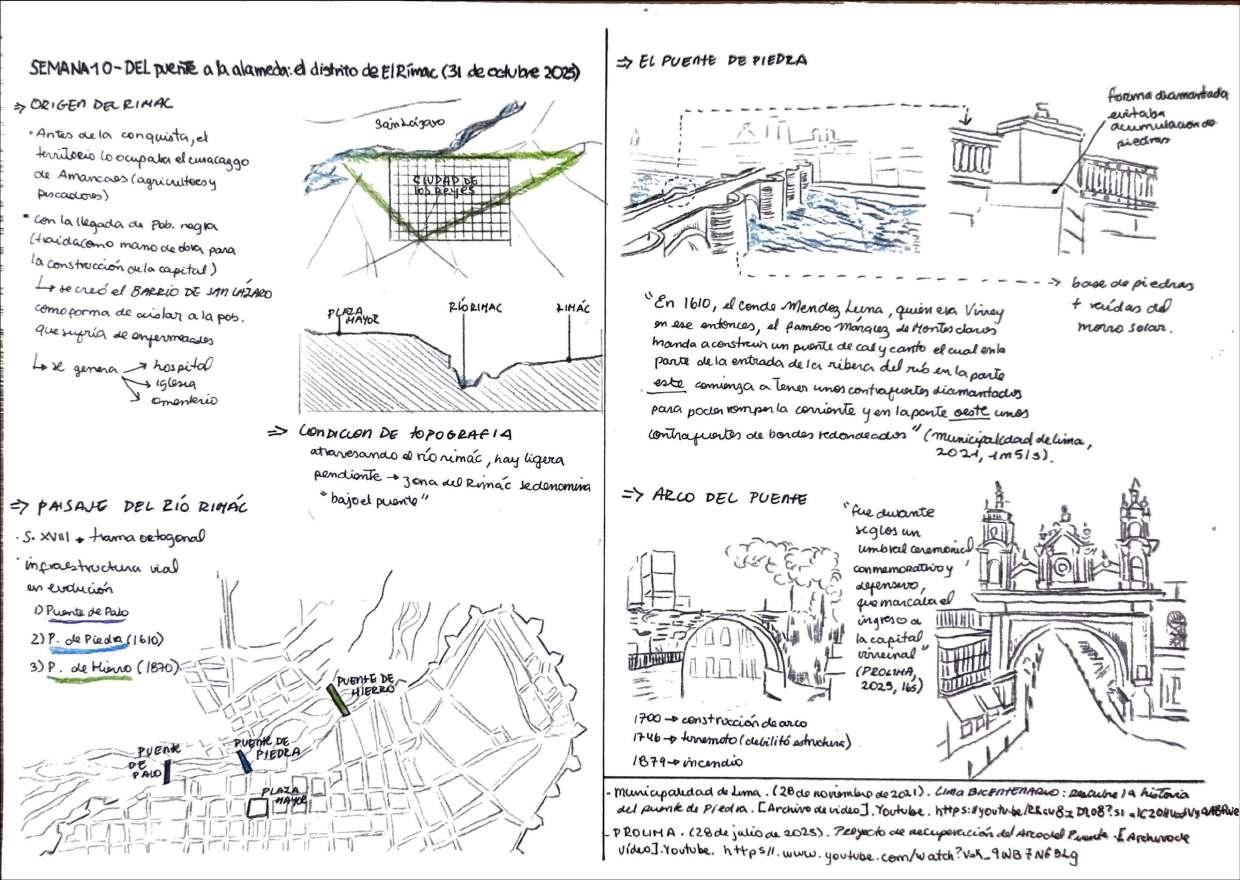 SEMANA 10 - DEL puente a la alameda: el distrito de El Rímac (31 de octubre 2025)
⇒ ORIGEN DEL RIMAC
• Antes de la conquista, el
territorio lo ocupaba el curacazgo
de Amancaes (agricultores y
pescadores)
• con la llegada de Pob. negra
(traida como mano de obra para
la construcción de la capital)
↳ se creó el BARRIO DE SAN LÁZARO
como forma de aislar a la pob.
que sufría de enfermedades
↳ se genera → hospital
→ iglesia
→ cementerio
San Lázaro
CIUDAD DE
los Reyes
PLAZA
MAYOR
RÍO RIMAC
RIMÁC
⇒ CONDICION DE TOPOGRAFIA
atravesando el río rimác, hay ligera
pendiente → zona del Rimác se denomina
"bajo el puente"
⇒ PAISAJE DEL RÍO RIMÁC
• S. XVIII → trama ortogonal
• infraestructura vial
en evolución
1) Puente de Palo
2) P. de Piedra (1610)
3) P. de Hierro (1870)
PUENTE DE
HIERRO
PUENTE DE
PIEDRA
PUENTE
DE
PALO
PLAZA
MAYOR
⇒ EL PUENTE DE PIEDRA
forma diamantada
evitaba
acumulación de
piedras
→ base de piedras
+ raídas del
morro solar.
"En 1610, el conde Mendez Luna, quien era Virrey
en ese entonces, el famoso Márquez de Montesclaros
manda a construir un puente de cal y canto el cual en la
parte de la entrada de la ribera del río en la parte
este comienza a tener unos contrafuertes diamantados
para poder romper la corriente y en la parte oeste unos
contrafuertes de bordes redondeados" (Municipalidad de lima,
2021, 1m51s).
⇒ ARCO DEL PUENTE
"fue durante
siglos un
umbral ceremonial,
conmemorativo y
defensivo,
que marcaba el
ingreso a
la capital
virreinal"
(PROLIMA,
2025, 16s)
1700 → construcción de arco
1746 → terremoto (debilitó estructura)
1879 → incendio
- Municipalidad de Lima. (28 de noviembre de 2021). LIMA BICENTENARIO: Descubre la historia
del puente de Piedra. [Archivo de video]. Youtube.
- PROLIMA. (28 de julio de 2025). Proyecto de recuperación del Arco del Puente. [Archivo de
vídeo]. Youtube.